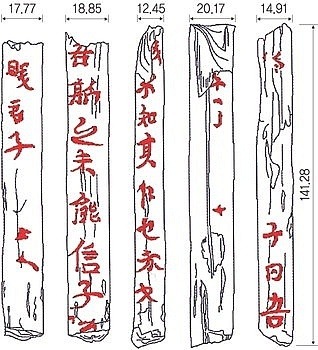 17,77
18,85
12,45
20,17
14,91
賤君子 人
吾斯之未能信子
不知其仁也赤也
子曰吾
141.28